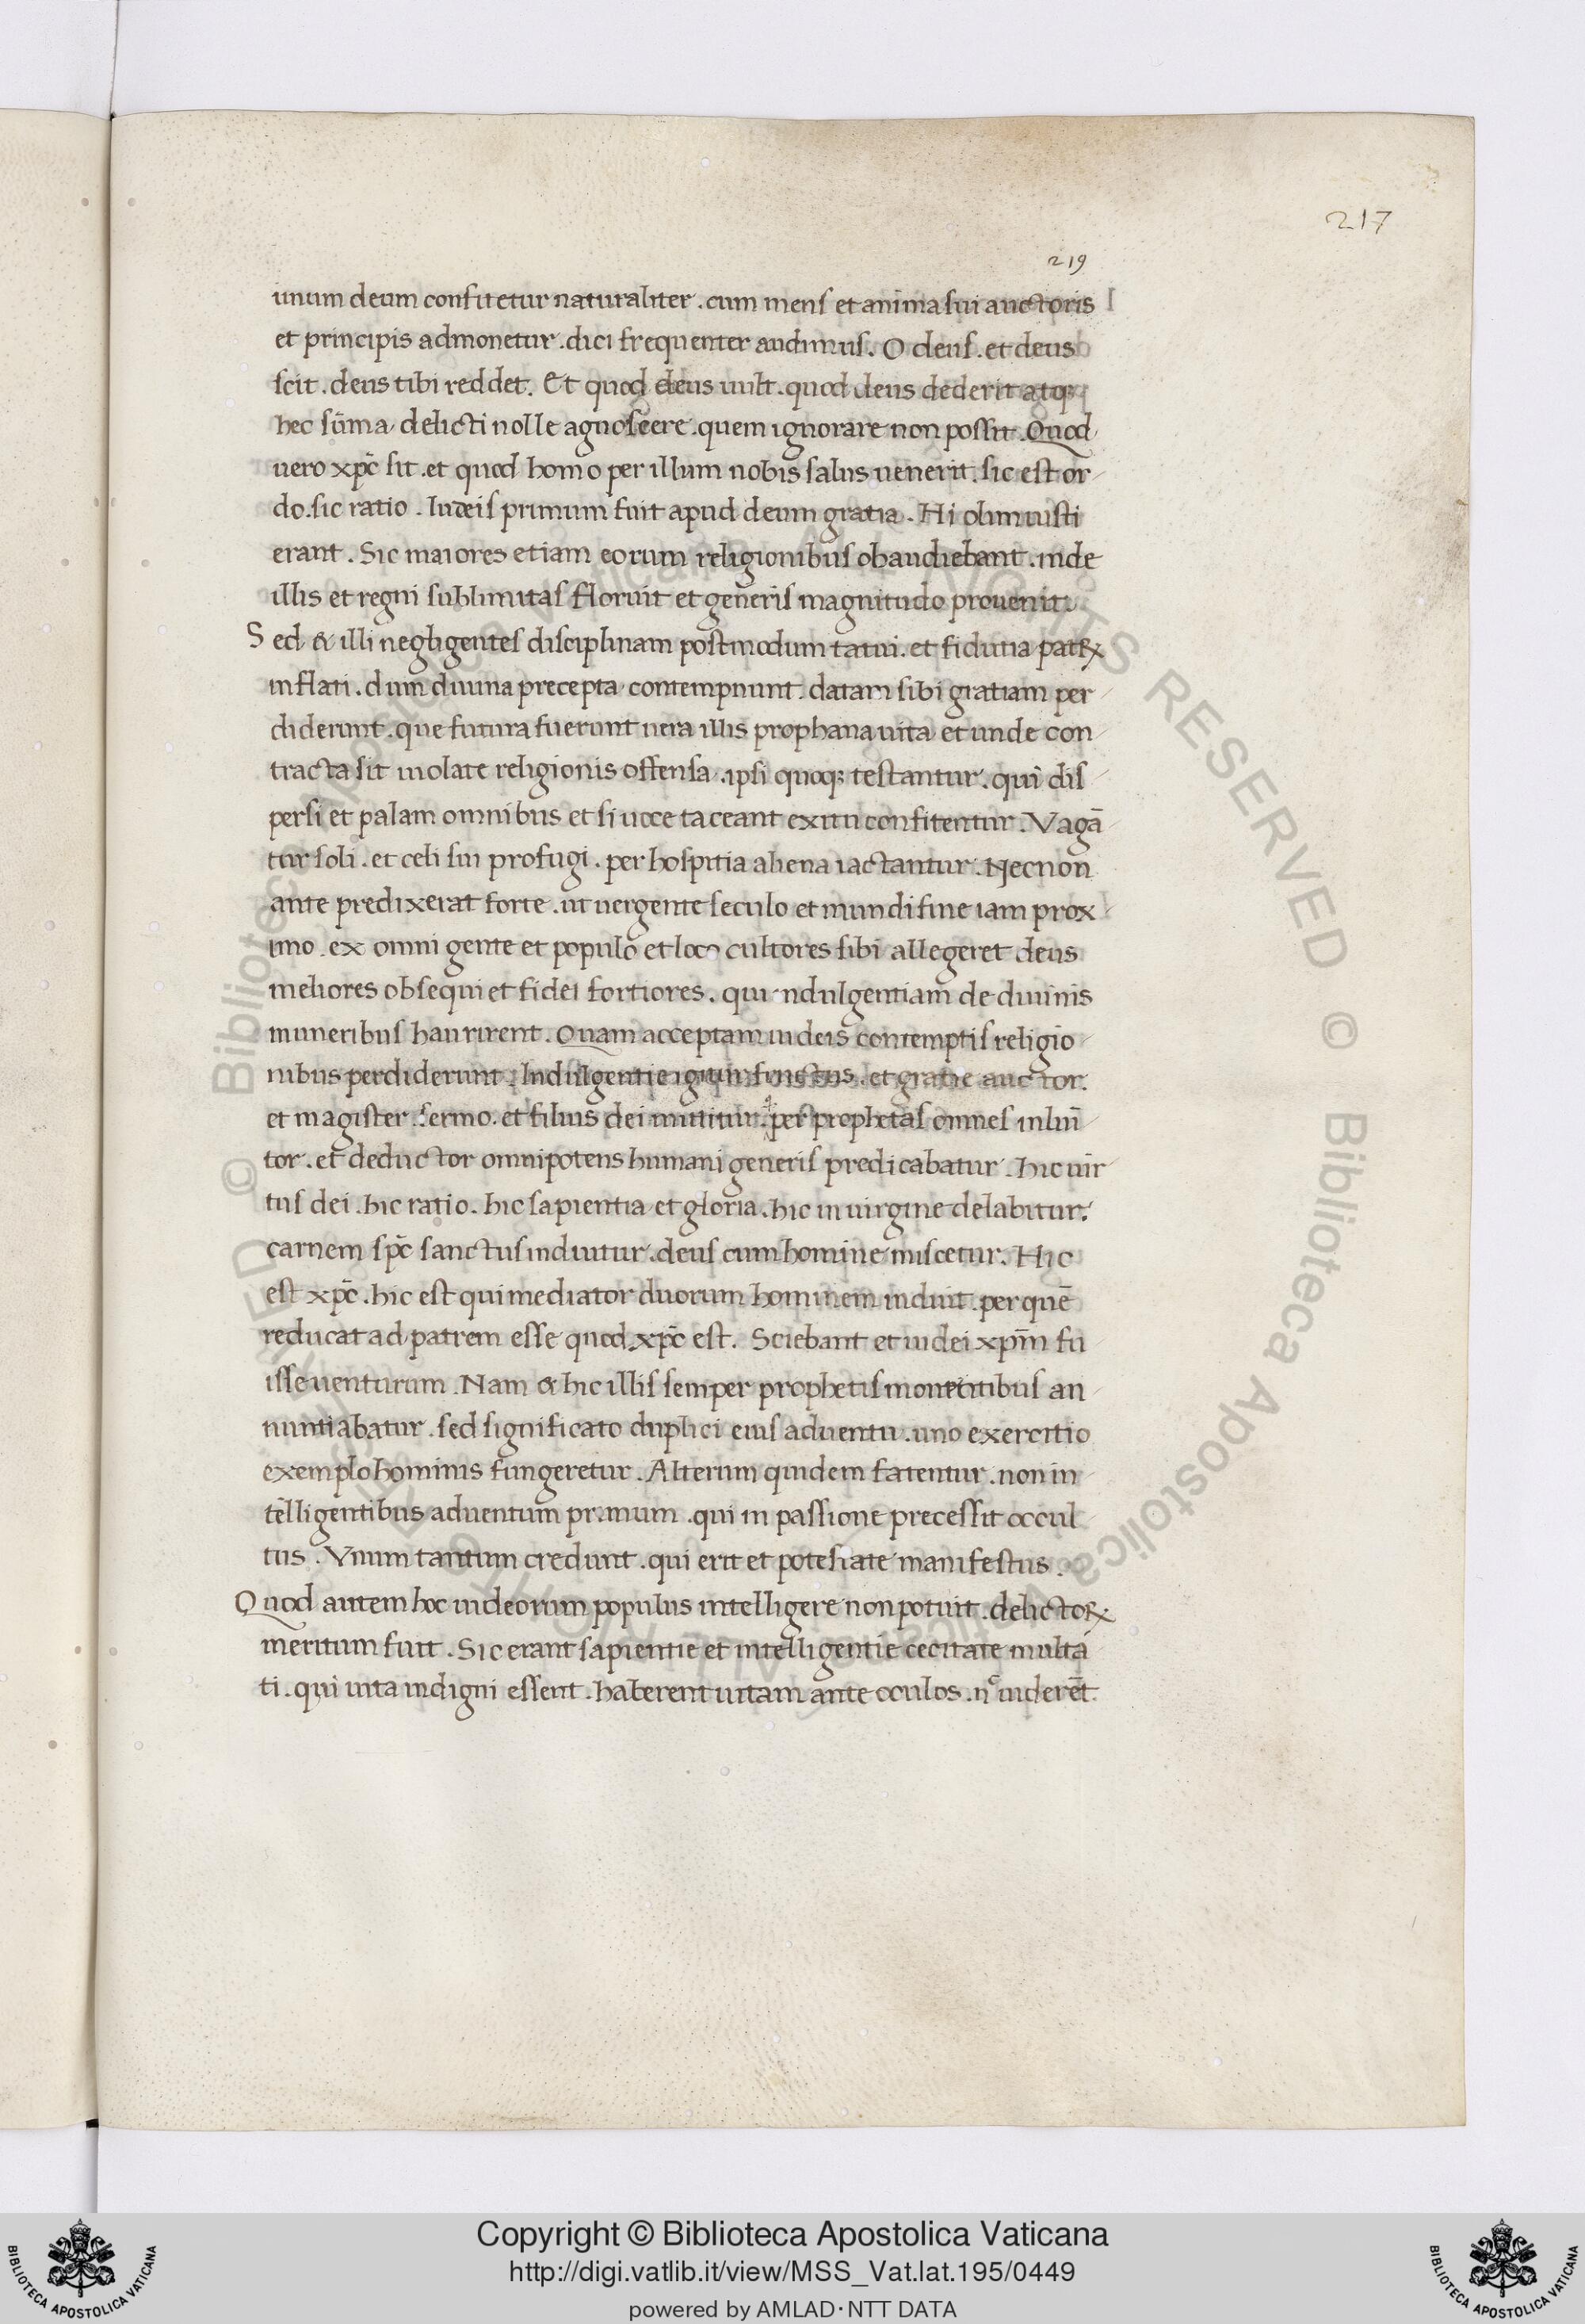 217
219
unum deum confitetur naturaliter . cum mens et anima sui auctoris
et principis admonetur . dici frequenter audimus . O deus . et deus
scit . deus tibi reddet . Et quod deus uult . quod deus dederit atq;
hec sūma delicti nolle agnoscere . quem ignorare non possit . Quod
uero xp̄c sit . et quod homo per illum nobis salus uenerit . sic est or
do . sic ratio . Iudeis primum fuit apud deum gratia . Hi olim iusti
erant . Sic maiores etiam eorum religionibus obaudiebant . inde
illis et regni sublimitas floruit et generis magnitudo prouenit .
Sed & illi negligentes disciplinam postmodum tatui . et fidutia patrꝝ
inflati . dum diuina precepta contempnunt . datam sibi gratiam per
diderunt . que futura fuerunt uera illis prophana uita et unde con
tracta sit uiolate religionis offensa . ipsi quoq; testantur . qui dis
persi et palam omnibus et si uoce taceant exitu confitentur . Vagā
tur soli . et celi sui profugi . per hospitia aliena iactantur . Necnon
ante predixerat forte . ut uergente seculo et mundi fine iam prox
imo . ex omni gente et populo et loco cultores sibi allegeret deus
meliores obsequi et fidei fortiores . qui indulgentiam de diuinis
muneribus haurirent . Quam acceptam iudeis contemptis religio
nibus perdiderunt . Indulgentie igitur functus . et gratie auctor .
et magister . sermo . et filius dei mittitur . per prophetas omnes inlūi
tor . et deductor omnipotens humani generis predicabatur . hic uir
tus dei . hic ratio . hic sapientia et gloria . hic in uirgine delabitur .
carnem sp̄c sanctus induitur . deus cum homine miscetur . Hic
est xp̄c . hic est qui mediator duorum hominem induit . per quē
reducat ad patrem esse quod xp̄c est . Sciebant et iudei xp̄m fu
isse uenturum . Nam & hic illis semper prophetis monentibus an
nuntiabatur . sed significato duplici eius aduentu . uno exercitio
exemplo hominis fungeretur . Alterum quidem fatentur . non in
telligentibus aduentum primum . qui in passione precessit occul
tus . Vnum tantum credunt . qui erit et potestate manifestus .
Quod autem hoc iudeorum populus intelligere non potuit . delictoꝝ
meritum fuit . Sic erant sapientie et intelligentie cecitate multa
ti . qui uita indigni essent . haberent uitam ante oculos . nͨ uiderēt
© Biblioteca Apostolica Vaticana ALL RIGHTS RESERVED
Copyright © Biblioteca Apostolica Vaticana
http://digi.vatlib.it/view/MSS_Vat.lat.195/0449
powered by AMLAD·NTT DATA
BIBLIOTECA APOSTOLICA VATICANA
BIBLIOTECA APOSTOLICA VATICANA